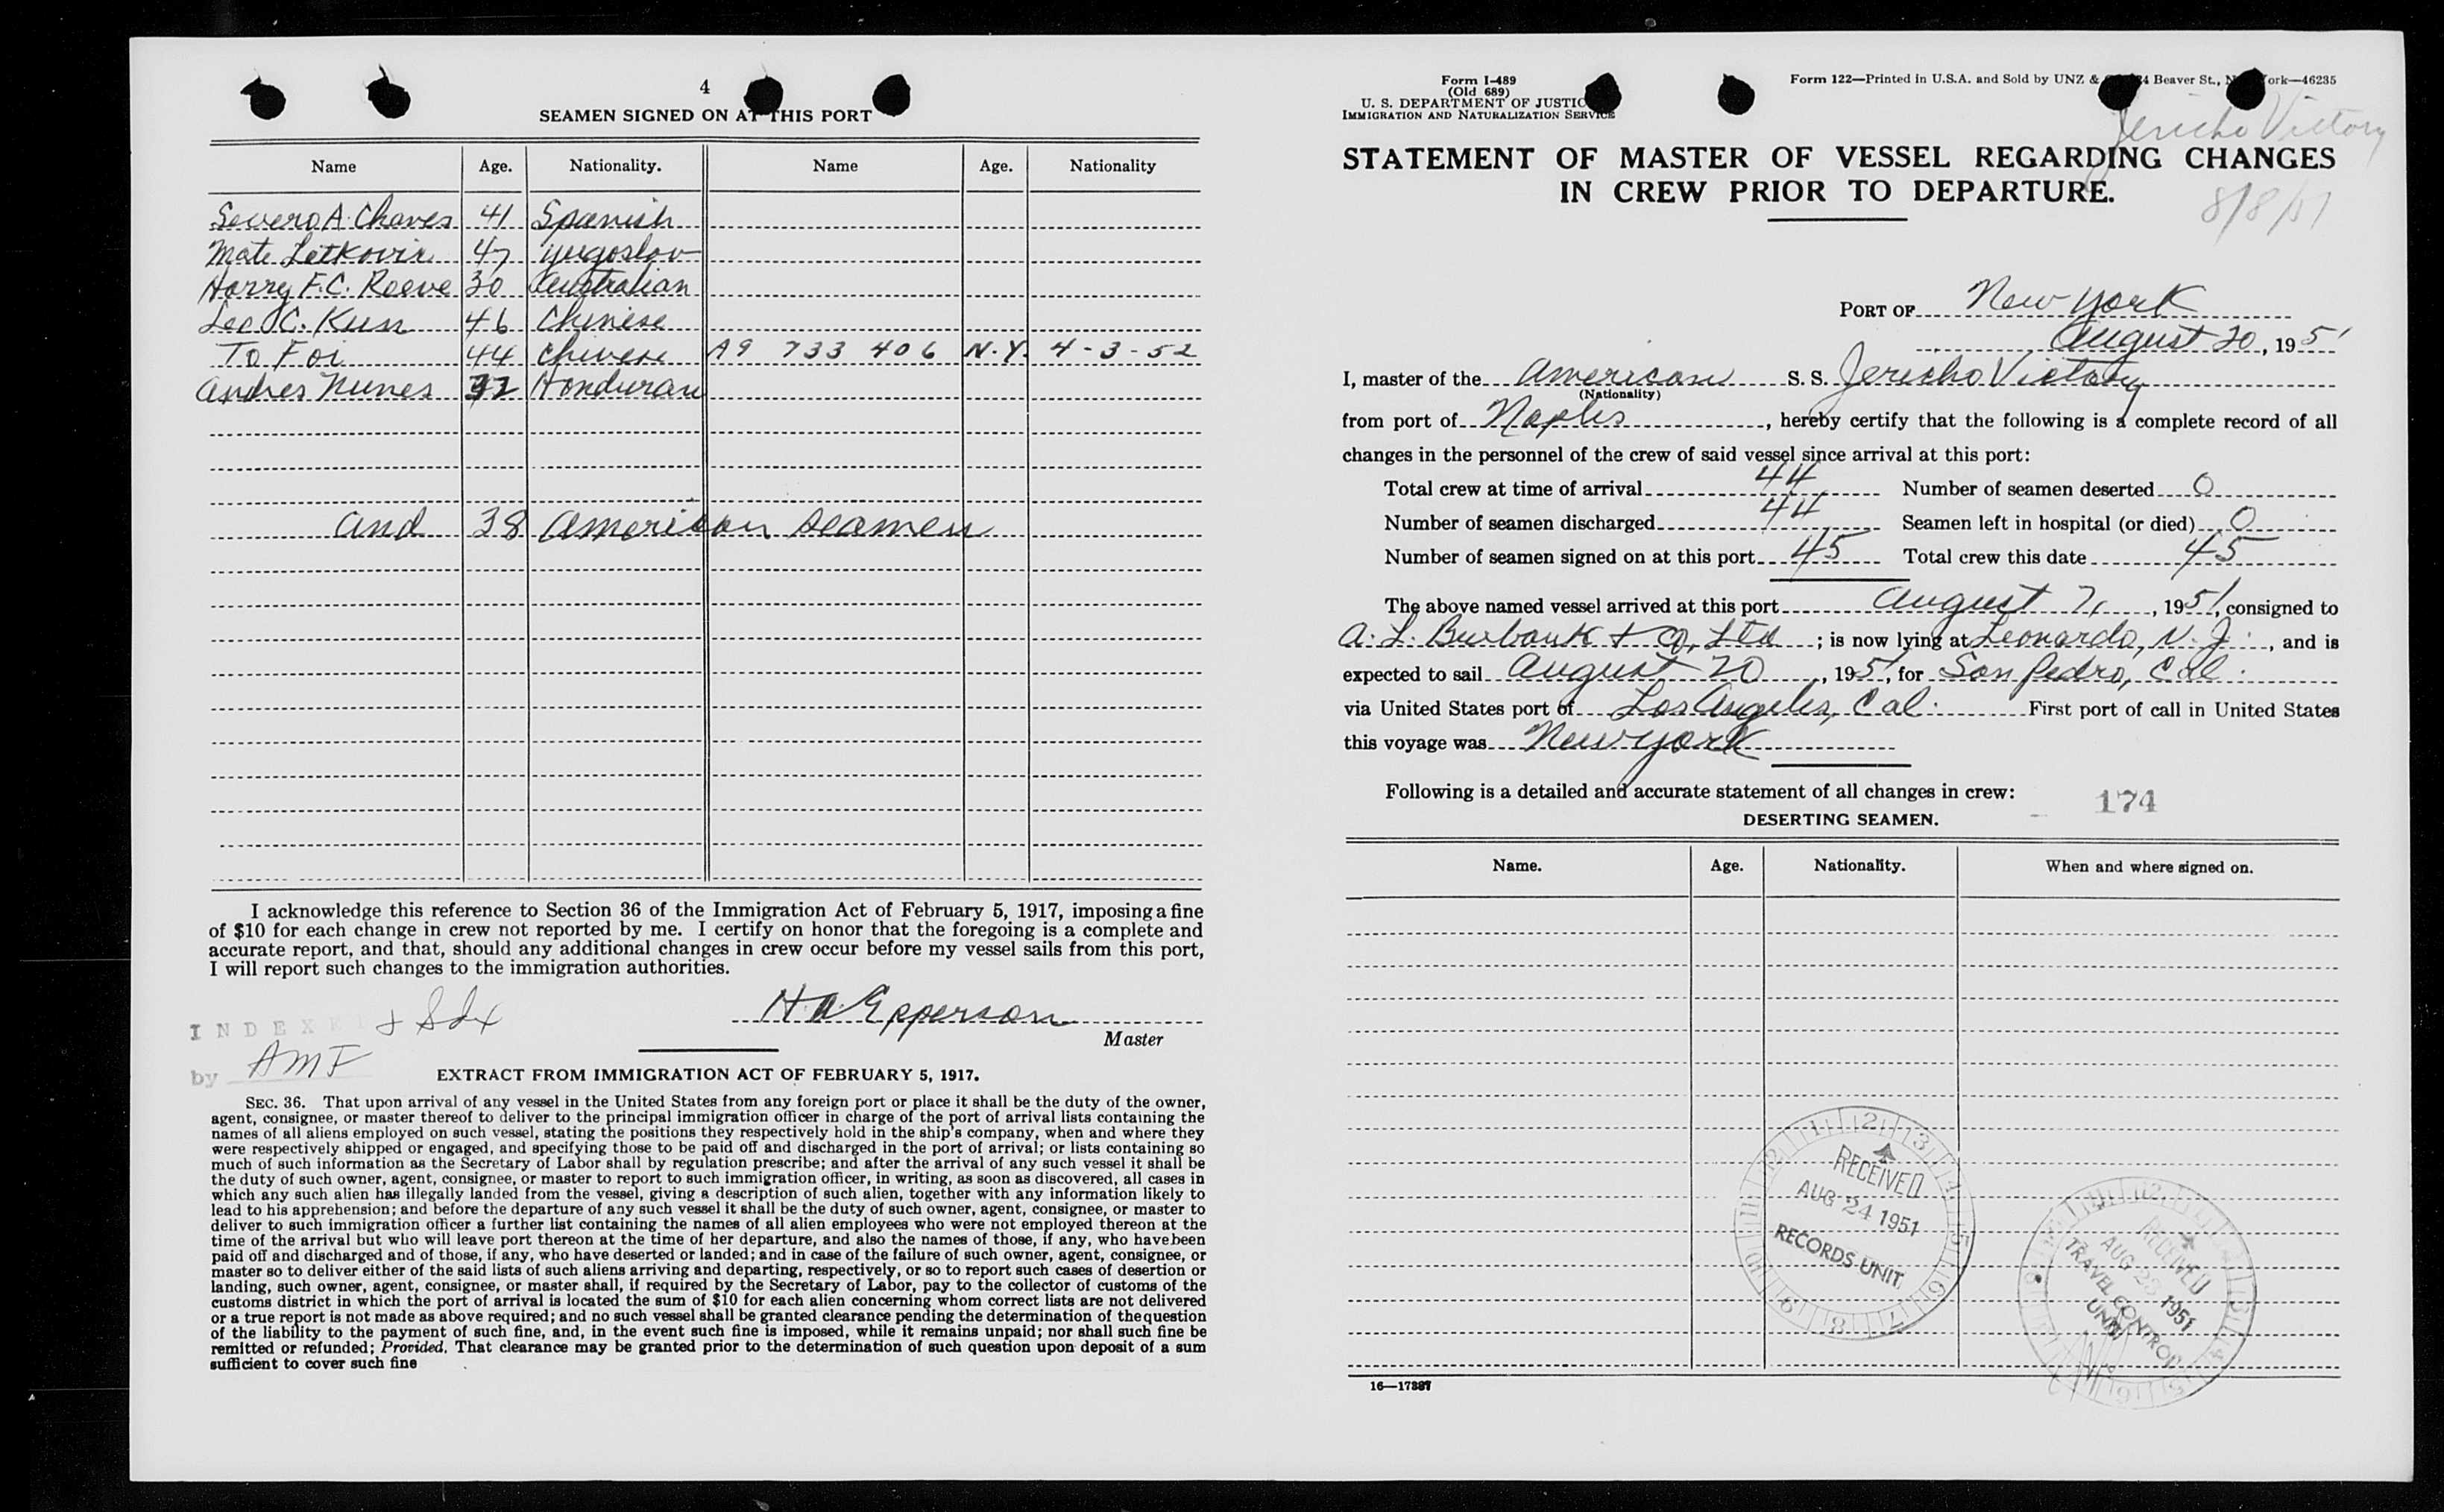 4
SEAMEN SIGNED ON AT THIS PORT
Name Age. Nationality. Name Age. Nationality
Severo A. Chaves 41 Spanish
Mate Letkovic 47 Yugoslav
Harry F.C. Reeve 30 Australian
Leo C. Kun 46 Chinese
To Foi 44 Chinese A9 733 406 N.Y. 4-3-52
Andres Nunes 32 Honduran
and 38 American seamen
I acknowledge this reference to Section 36 of the Immigration Act of February 5, 1917, imposing a fine
of $10 for each change in crew not reported by me. I certify on honor that the foregoing is a complete and
accurate report, and that, should any additional changes in crew occur before my vessel sails from this port,
I will report such changes to the immigration authorities.
H A Epperson
Master
INDEXE
by AMF
EXTRACT FROM IMMIGRATION ACT OF FEBRUARY 5, 1917.
SEC. 36. That upon arrival of any vessel in the United States from any foreign port or place it shall be the duty of the owner,
agent, consignee, or master thereof to deliver to the principal immigration officer in charge of the port of arrival lists containing the
names of all aliens employed on such vessel, stating the positions they respectively hold in the ship's company, when and where they
were respectively shipped or engaged, and specifying those to be paid off and discharged in the port of arrival; or lists containing so
much of such information as the Secretary of Labor shall by regulation prescribe; and after the arrival of any such vessel it shall be
the duty of such owner, agent, consignee, or master to report to such immigration officer, in writing, as soon as discovered, all cases in
which any such alien has illegally landed from the vessel, giving a description of such alien, together with any information likely to
lead to his apprehension; and before the departure of any such vessel it shall be the duty of such owner, agent, consignee, or master to
deliver to such immigration officer a further list containing the names of all alien employees who were not employed thereon at the
time of the arrival but who will leave port thereon at the time of her departure, and also the names of those, if any, who have been
paid off and discharged and of those, if any, who have deserted or landed; and in case of the failure of such owner, agent, consignee, or
master so to deliver either of the said lists of such aliens arriving and departing, respectively, or so to report such cases of desertion or
landing, such owner, agent, consignee, or master shall, if required by the Secretary of Labor, pay to the collector of customs of the
customs district in which the port of arrival is located the sum of $10 for each alien concerning whom correct lists are not delivered
or a true report is not made as above required; and no such vessel shall be granted clearance pending the determination of the question
of the liability to the payment of such fine, and, in the event such fine is imposed, while it remains unpaid; nor shall such fine be
remitted or refunded; Provided, That clearance may be granted prior to the determination of such question upon deposit of a sum
sufficient to cover such fine
Form I-489
(Old 689)
U. S. DEPARTMENT OF JUSTIC
IMMIGRATION AND NATURALIZATION SERVICE
Form 122—Printed in U.S.A. and Sold by UNZ & 4 Beaver St., N ork—46235
Jericho Victory
STATEMENT OF MASTER OF VESSEL REGARDING CHANGES
IN CREW PRIOR TO DEPARTURE.
8/8/51
PORT OF New York
August 20, 1951
I, master of the American S. S. Jericho Victory
(Nationality)
from port of Naples, hereby certify that the following is a complete record of all
changes in the personnel of the crew of said vessel since arrival at this port:
Total crew at time of arrival 44 Number of seamen deserted 0
Number of seamen discharged 44 Seamen left in hospital (or died) 0
Number of seamen signed on at this port 45 Total crew this date 45
The above named vessel arrived at this port August 7, 1951, consigned to
A. L. Burbank & Co, Ltd; is now lying at Leonardo, N. J., and is
expected to sail August 20, 1951, for San Pedro, Cal.
via United States port of Los Angeles, Cal. First port of call in United States
this voyage was New York
Following is a detailed and accurate statement of all changes in crew:
174
DESERTING SEAMEN.
Name. Age. Nationality. When and where signed on.
RECEIVED
AUG 24 1951
RECORDS UNIT
RECEIVED
AUG 23 1951
TRAVEL CONTROL
UNIT
16—17387